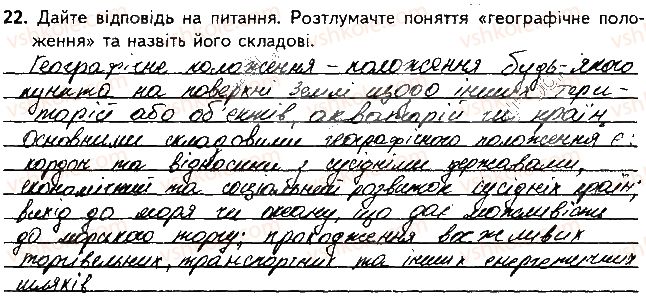 22. Дайте відповідь на питання. Розтлумачте поняття «географічне поло-
ження» та назвіть його складові.
Географічне положення – положення будь-якого
пункта на поверхні землі щодо інших тери-
торій або об'єктів, акваторій чи країн.
Основними складовими географічного положення є:
кордон та відносини з сусідніми державами,
економічний та соціальний розвиток сусідніх країн;
вихід до моря чи океану, що дає можливість
до морського торгу; проходження важливих
торгівельних, транспортних та інших енергетичних
шляхів